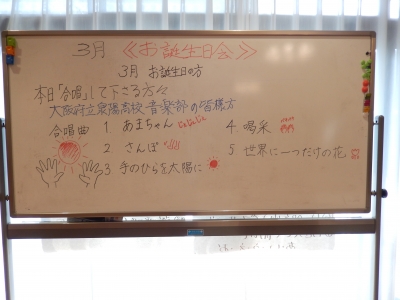 3月 《お誕生日会》
3月 お誕生日の方
本日「合唱」して下さる方々
大阪府立泉陽高校 音楽部の皆様方
合唱曲 1 あまちゃん じぇじぇじぇ
2 さんぽ
3 手のひらを太陽に
4 喝采
5 世界に一つだけの花